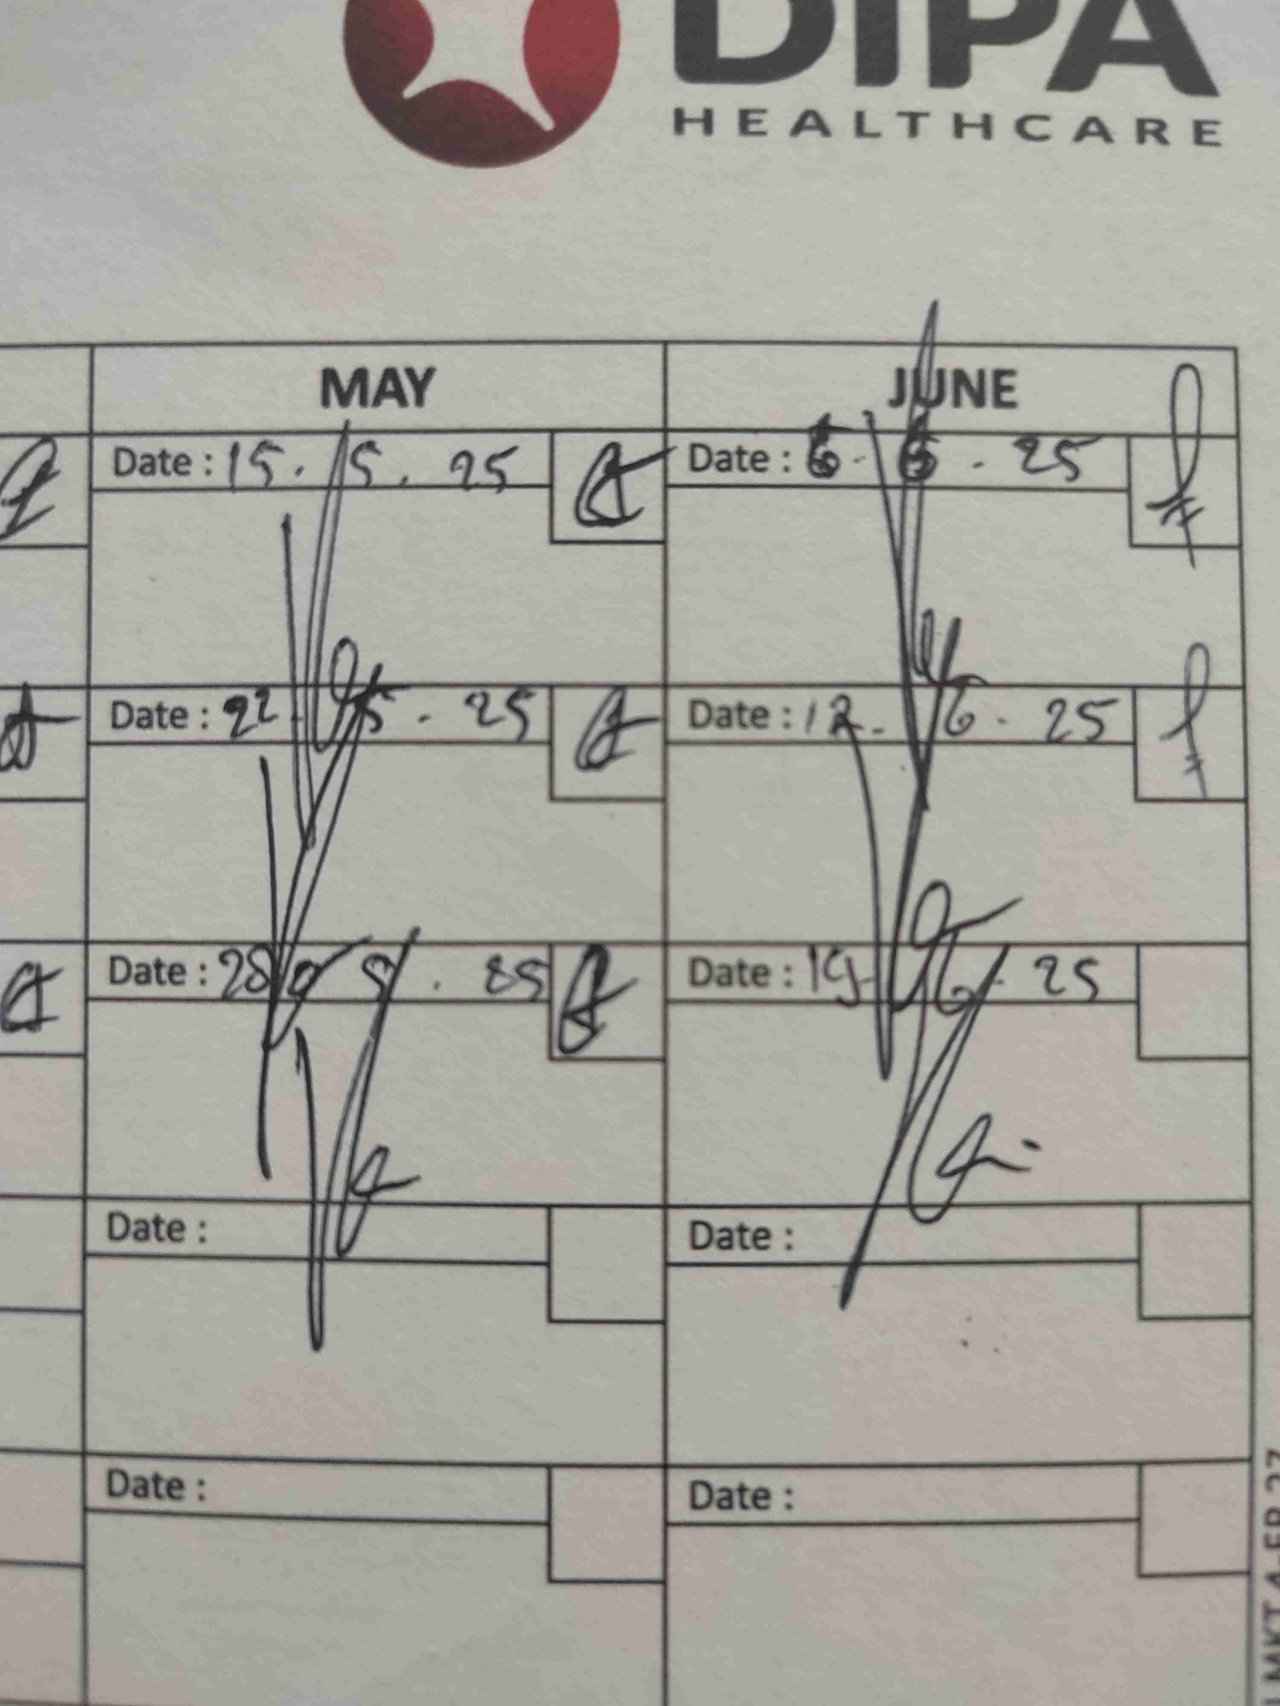 DIPA
HEALTHCARE
MAY
JUNE
Date : 15. 5. 25
Date : 6. 6. 25
Date : 22. 5. 25
Date : 12. 6. 25
Date : 28
Date : 19 6. 25
Date :
Date :
Date :
Date :